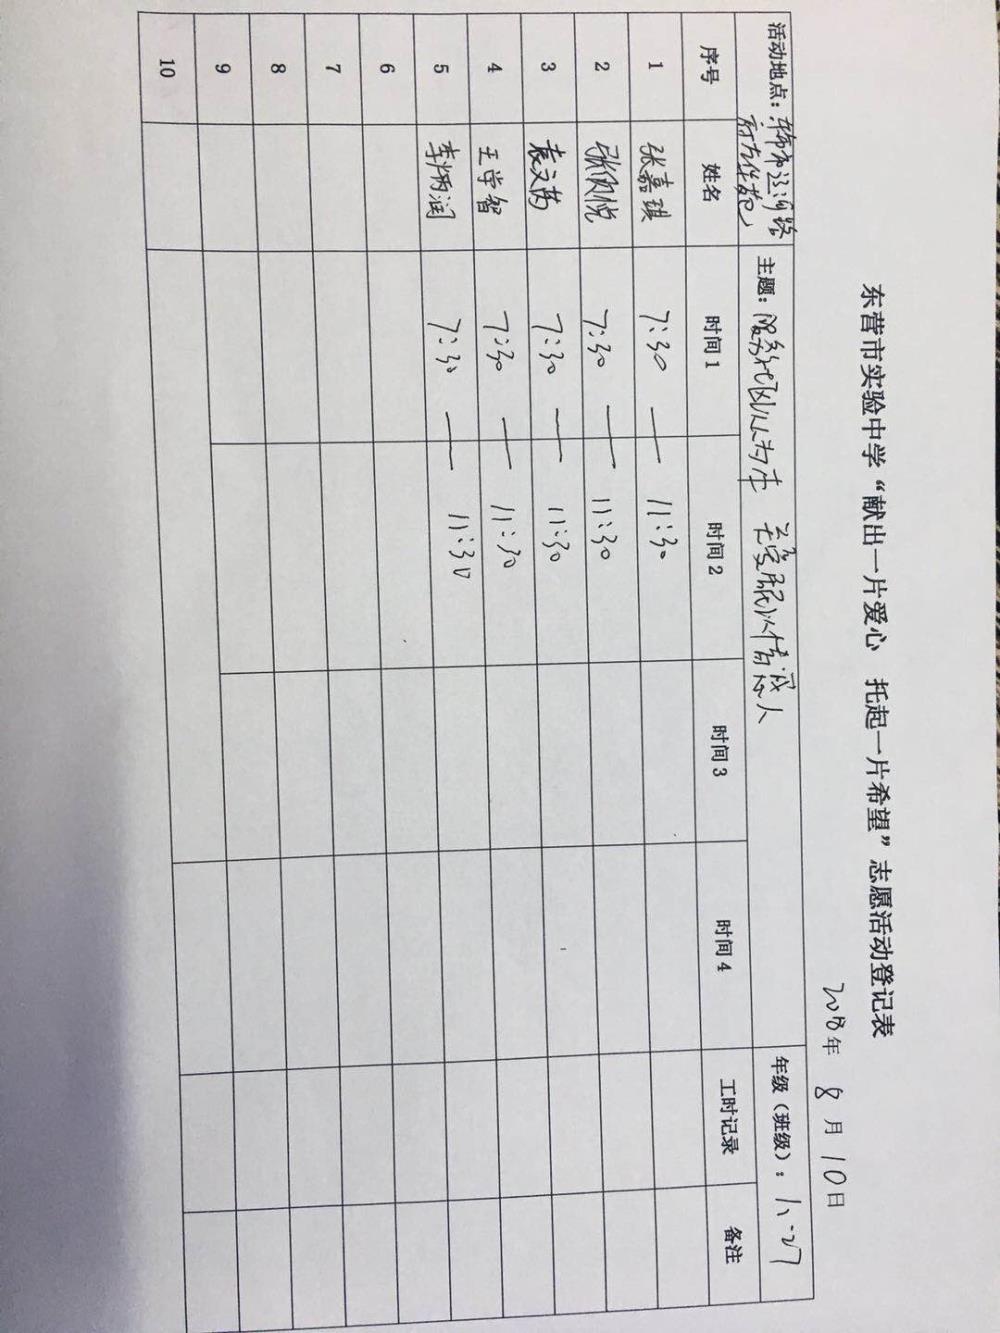 东营市实验中学“献出一片爱心 托起一片希望”志愿活动登记表
2018年 8 月 10日
活动地点： 主题：服务社区 年级（班级）：
序号 姓名 时间1 时间2 时间3 时间4 工时记录 备注
1 张嘉琪 7:30 — 11:30
2 7:30 — 11:30
3 7:30 — 11:30
4 王学智 7:30 — 11:30
5 李炳润 7:30 — 11:30
6
7
8
9
10